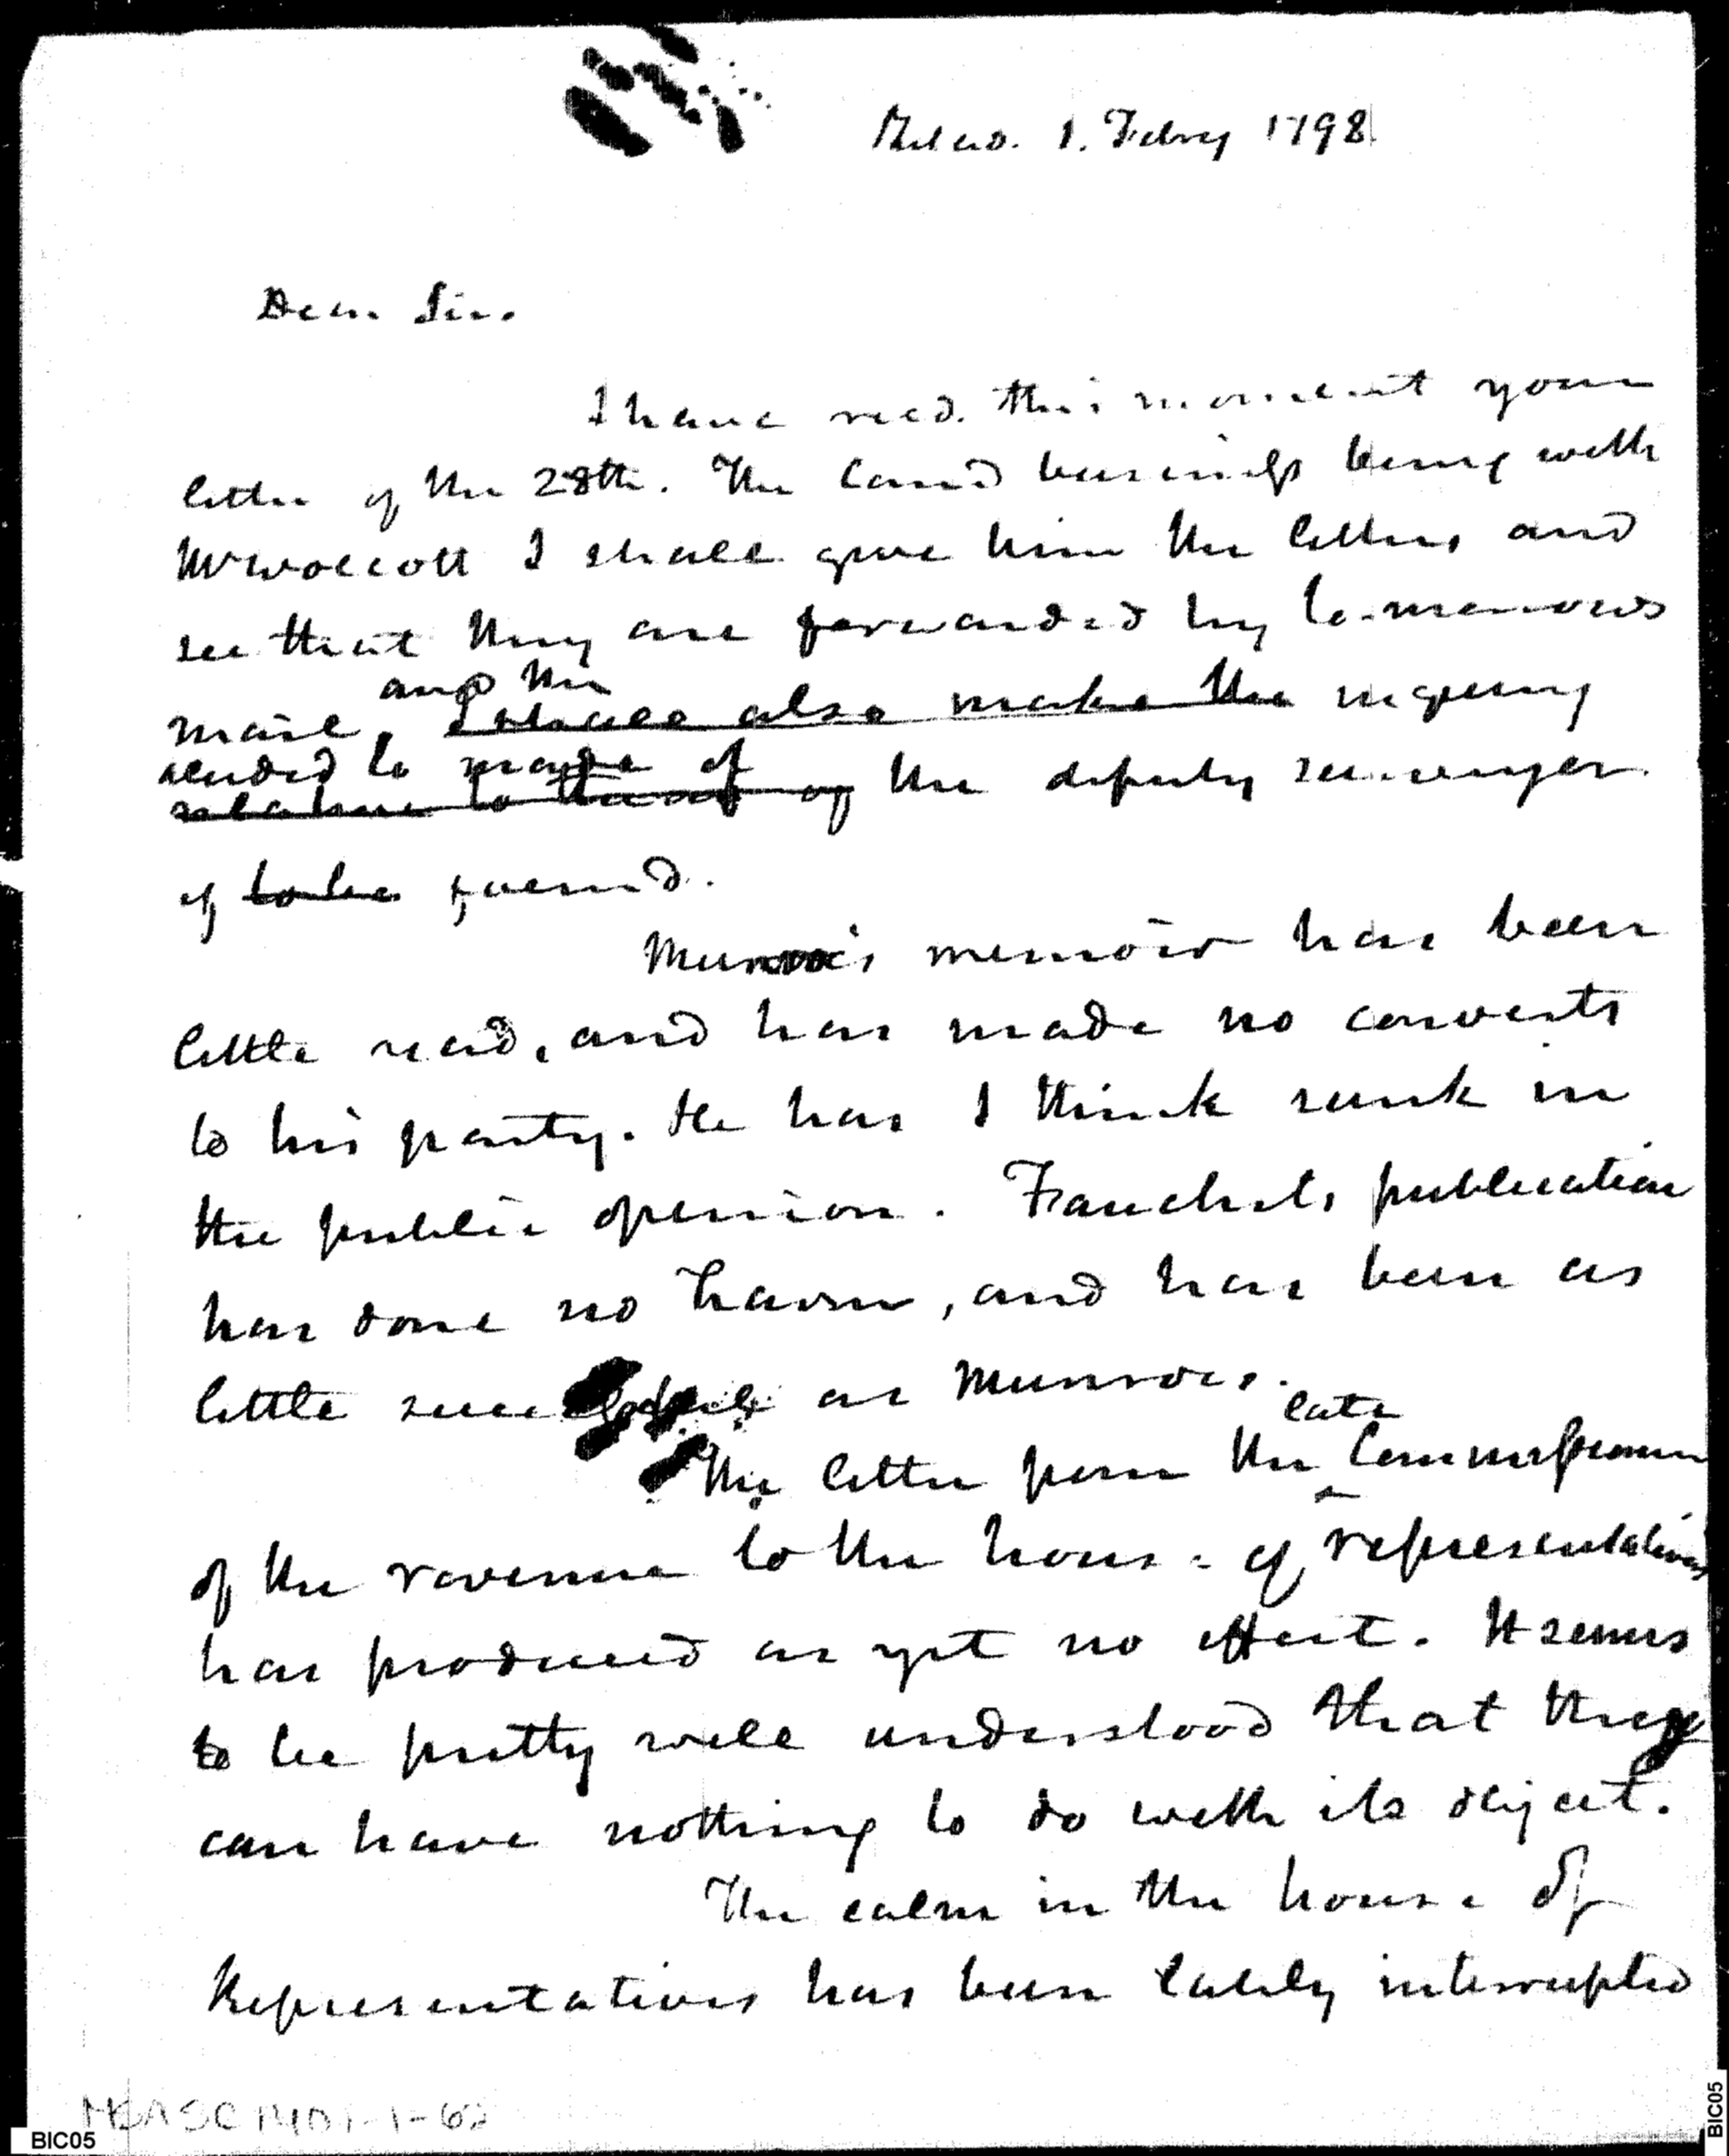 Philad. 1. Febry 1798
Dear Sir.
I have recd. this moment your
letter of the 28th. The Land business being with
Mr Wolcott I shall give him the letters and
see that they are forwarded by to-morrows
and the
mail. I shall also make the inquiry
needed to made of
relative to of the deputy surveyor
if to be found.
Munroe's memoir has been
little read, and has made no converts
to his party. He has I think sunk in
the public opinion. Fauchets publication
has done no harm, and has been as
little successful as Munroes.
late
The letter from the Commissioner
of the revenue to the house of representatives
has produced as yet no effect. It seems
to be pretty well understood that they
can have nothing to do with its object.
The calm in the house of
Representatives has been lately interrupted
BIC05
BIC05